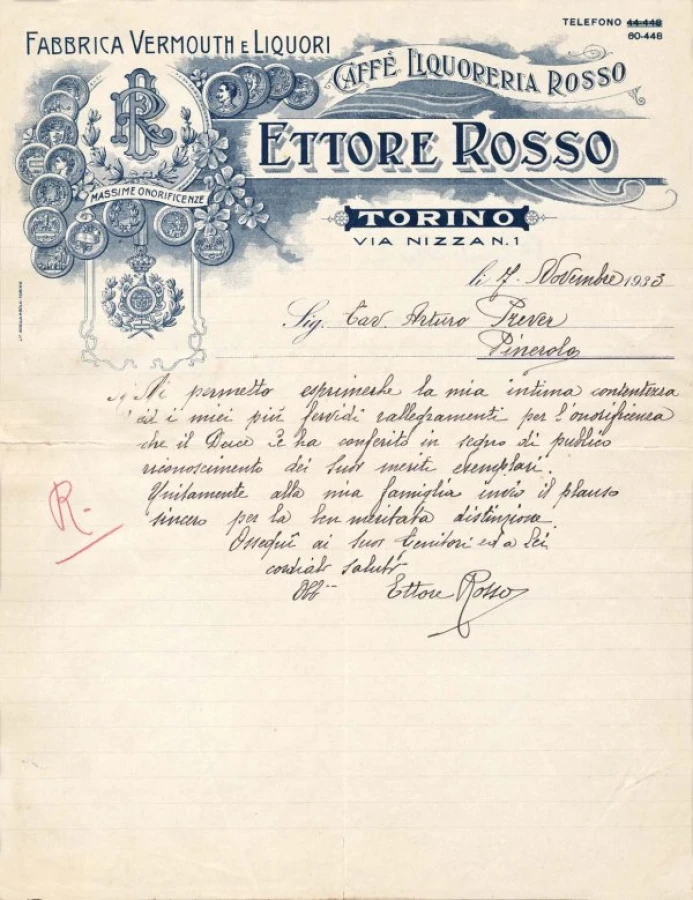 TELEFONO 44-448
60-448
FABBRICA VERMOUTH E LIQUORI
CAFFÈ LIQUORERIA ROSSO
ETTORE ROSSO
MASSIME ONORIFICENZE
TORINO
VIA NIZZA N. 1
li 7. Novembre 1933
Sig. Cav. Arturo Prever
Pinerolo
Mi permetto esprimerle la mia intima contentezza
ed i miei più fervidi rallegramenti per l'onorificenza
che il Duce Le ha conferito in segno di publico
riconoscimento dei Suoi meriti esemplari.
Unitamente alla mia famiglia invio il plauso
sincero per la ben meritata distinzione.
Ossequi ai Suoi Genitori ed a Lei
cordiali saluti
Obb.
Ettore Rosso
R.